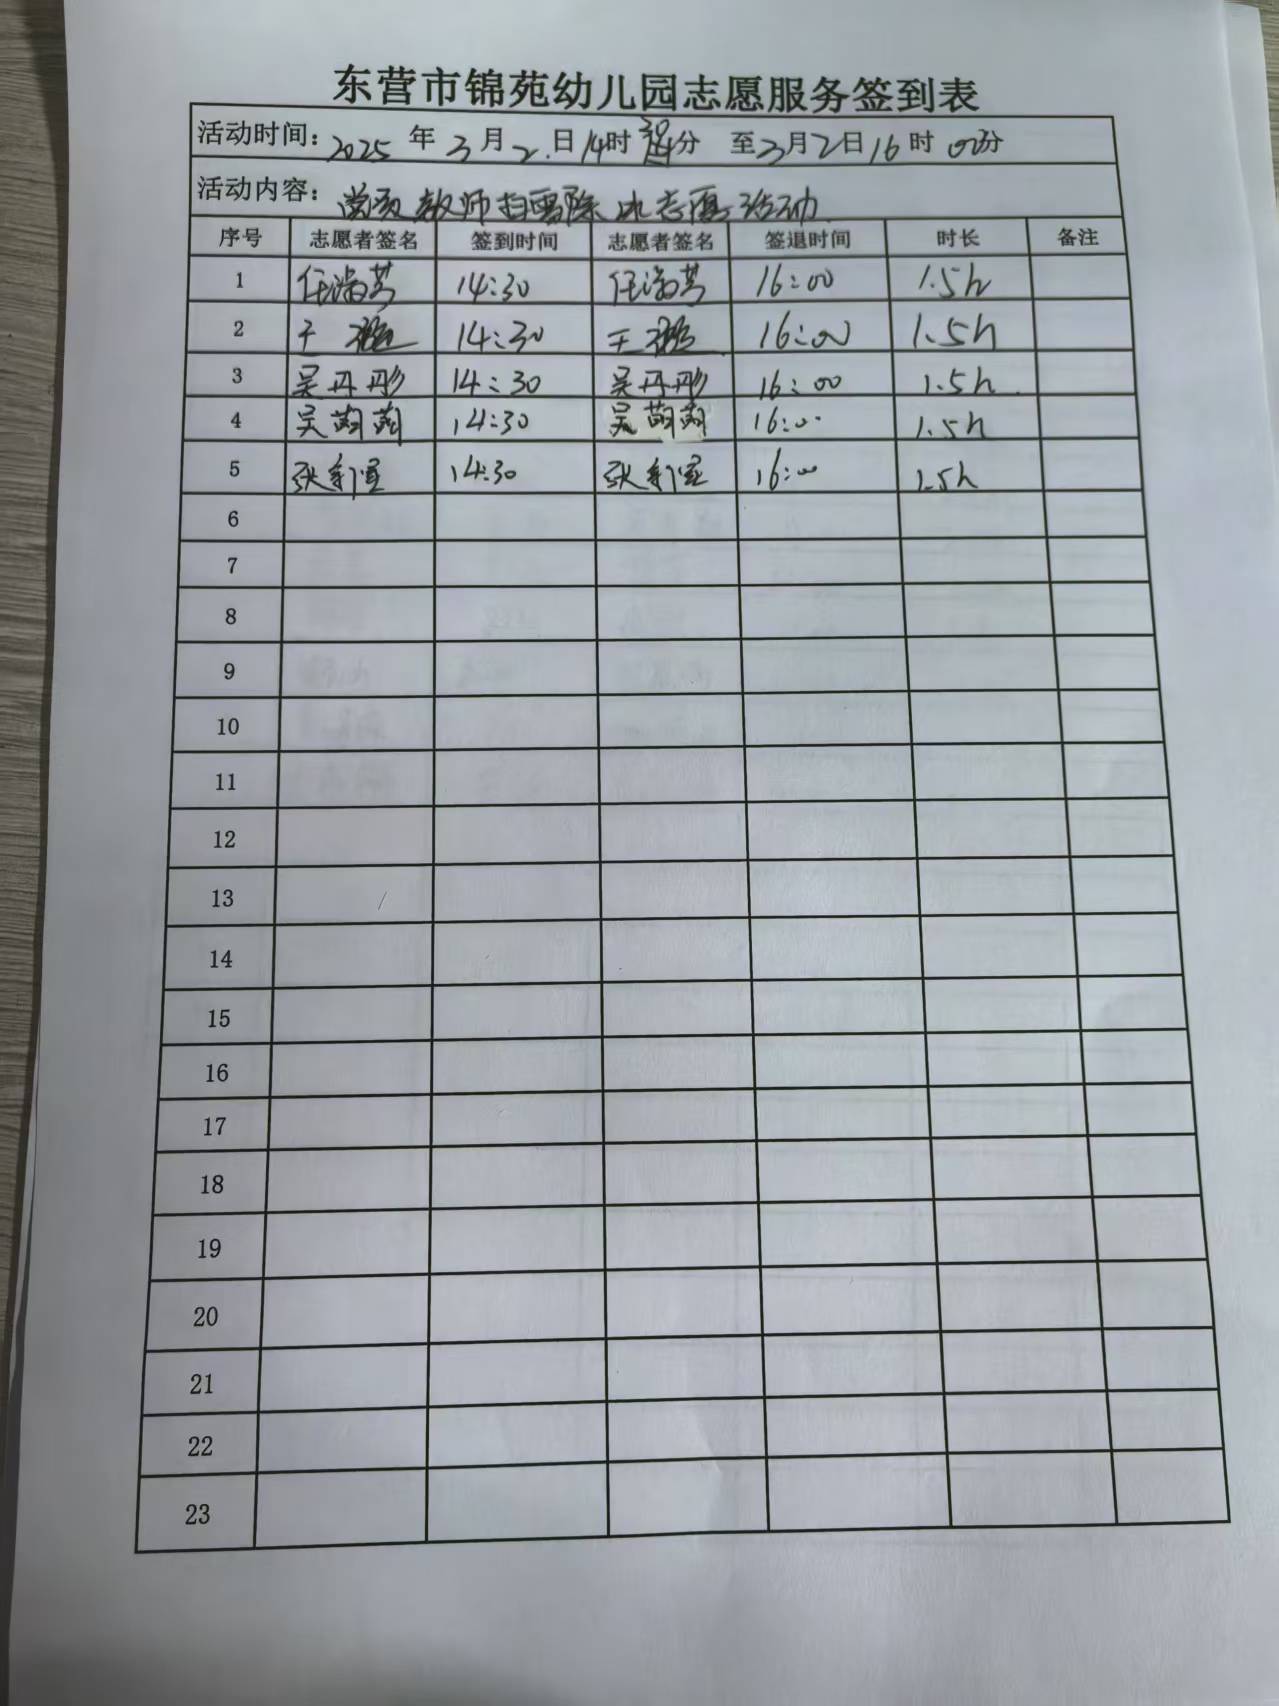 东营市锦苑幼儿园志愿服务签到表
活动时间：2025 年 3 月 2 日 14时 30分 至3月2日16 时 00分
活动内容：党员教师扫雪除冰志愿活动
序号 志愿者签名 签到时间 志愿者签名 签退时间 时长 备注
1 任 14:30 任 16:00 1.5h
2 王 14:30 王 16:00 1.5h
3 吴丹彤 14:30 吴丹彤 16:00 1.5h
4 吴萌萌 14:30 吴萌萌 16:00 1.5h
5 张 14:30 张 16:00 1.5h
6
7
8
9
10
11
12
13
14
15
16
17
18
19
20
21
22
23